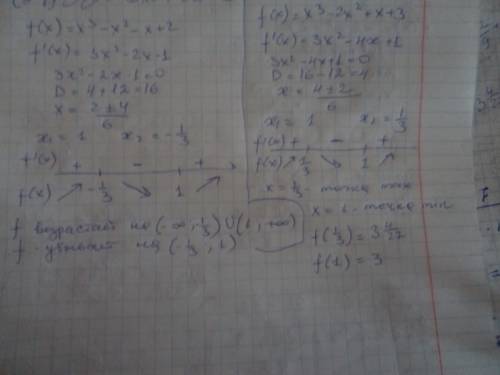 f(x) = x³ - x² - x + 2
f'(x) = 3x² - 2x - 1
3x² - 2x - 1 = 0
D = 4 + 12 = 16
x = (2 ± 4)/6
x₁ = 1 x₂ = -1/3
f'(x) + - +
f(x) ↗ -1/3 ↘ 1 ↗
f возрастает на (-∞, -1/3) ∪ (1, +∞)
f - убывает на (-1/3, 1)
f(x) = x³ - 2x² + x + 3
f'(x) = 3x² - 4x + 1
3x² - 4x + 1 = 0
D = 16 - 12 = 4
x = (4 ± 2)/6
x₁ = 1 x₂ = 1/3
f'(x) + - +
f(x) ↗ 1/3 ↘ 1 ↗
x = 1/3 - точка max
x = 1 - точка min
f(1/3) = 3 4/27
f(1) = 3